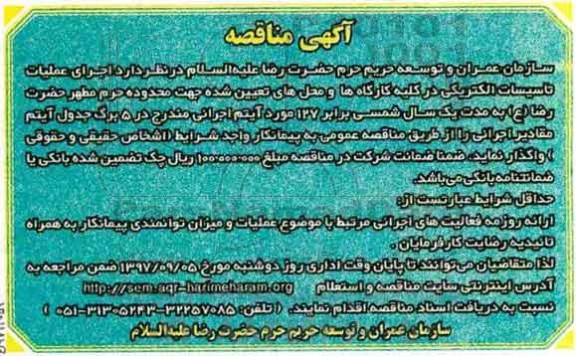 آگهی مناقصه
سازمان عمران و توسعه حریم حرم حضرت رضا علیه‌السلام درنظردارد اجرای عملیات
تاسیسات الکتریکی در کلیه کارگاه ها و محل های تعیین شده جهت محدوده حرم مطهر حضرت
رضا (ع) به مدت یک سال شمسی برابر ۱۲۷ مورد آیتم اجرائی مندرج در ۵ برگ جدول آیتم
مقادیر اجرائی را از طریق مناقصه عمومی به پیمانکار واجد شرایط (اشخاص حقیقی و حقوقی
) واگذار نماید. ضمنا ضمانت شرکت در مناقصه مبلغ ۱۰۰.۰۰۰.۰۰۰ ریال چک تضمین شده بانکی یا
ضمانتنامه بانکی می باشد.
حداقل شرایط عبارتست از:
ارائه روزمه فعالیت های اجرائی مرتبط با موضوع عملیات و میزان توانمندی پیمانکار به همراه
تائیدیه رضایت کارفرمایان .
لذا متقاضیان می‌توانند تا پایان وقت اداری روز دوشنبه مورخ ۱۳۹۷/۰۹/۰۵ ضمن مراجعه به
آدرس اینترنتی سایت مناقصه و استعلام http://sem.aqr-harimeharam.org
نسبت به دریافت اسناد مناقصه اقدام نمایند. ( تلفن: ۳۲۲۵۷۰۸۵-۳۱۳۰۵۲۴۳-۰۵۱ )
سازمان عمران و توسعه حریم حرم حضرت رضا علیه‌السلام